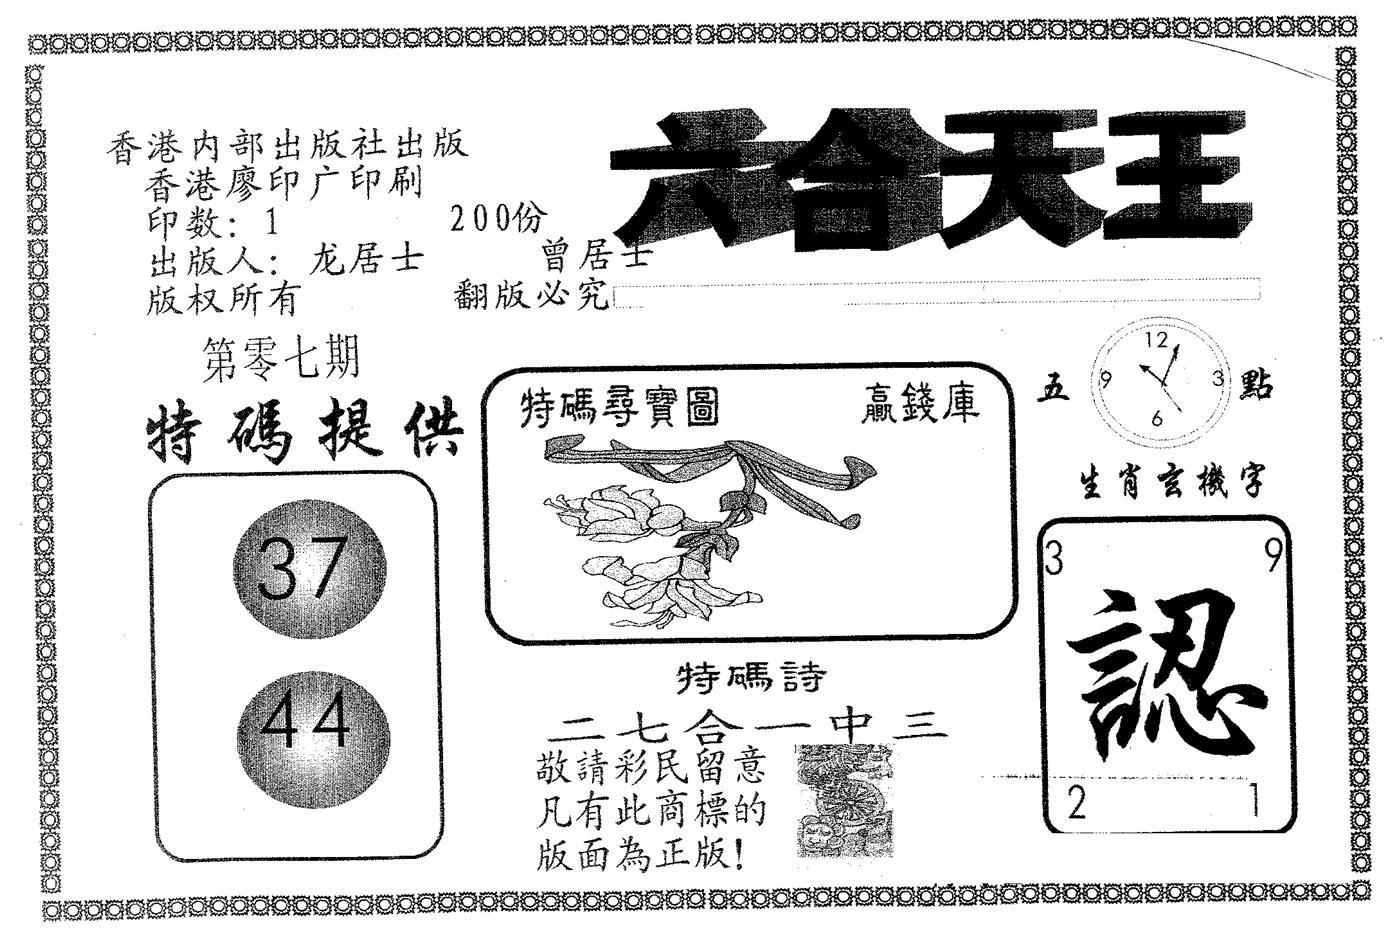 六合天王
香港内部出版社出版
香港廖印广印刷
印数：1 200份
出版人：龙居士 曾居士
版权所有 翻版必究
第零七期
特碼提供
37
44
特碼尋寶圖 贏錢庫
特碼詩
二七合一中三
敬請彩民留意
凡有此商標的
版面為正版！
五 點
12
9 3
6
生肖玄機字
3 9
認
2 1